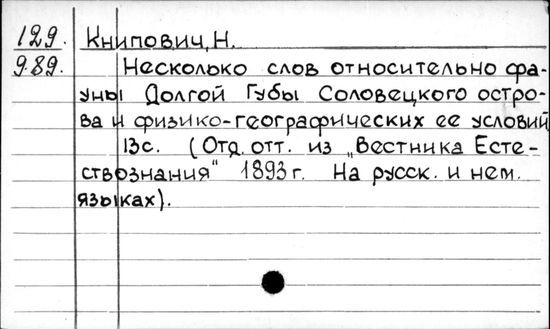 129. Книпович, Н.
9.89. Несколько слов относительно фа-
уны Долгой Губы Соловецкого остро-
ва и физико-географических ее условий
13с. (Отд. отт. из „Вестника Есте-
ствознания" 1893 г. На русск. и нем.
языках).